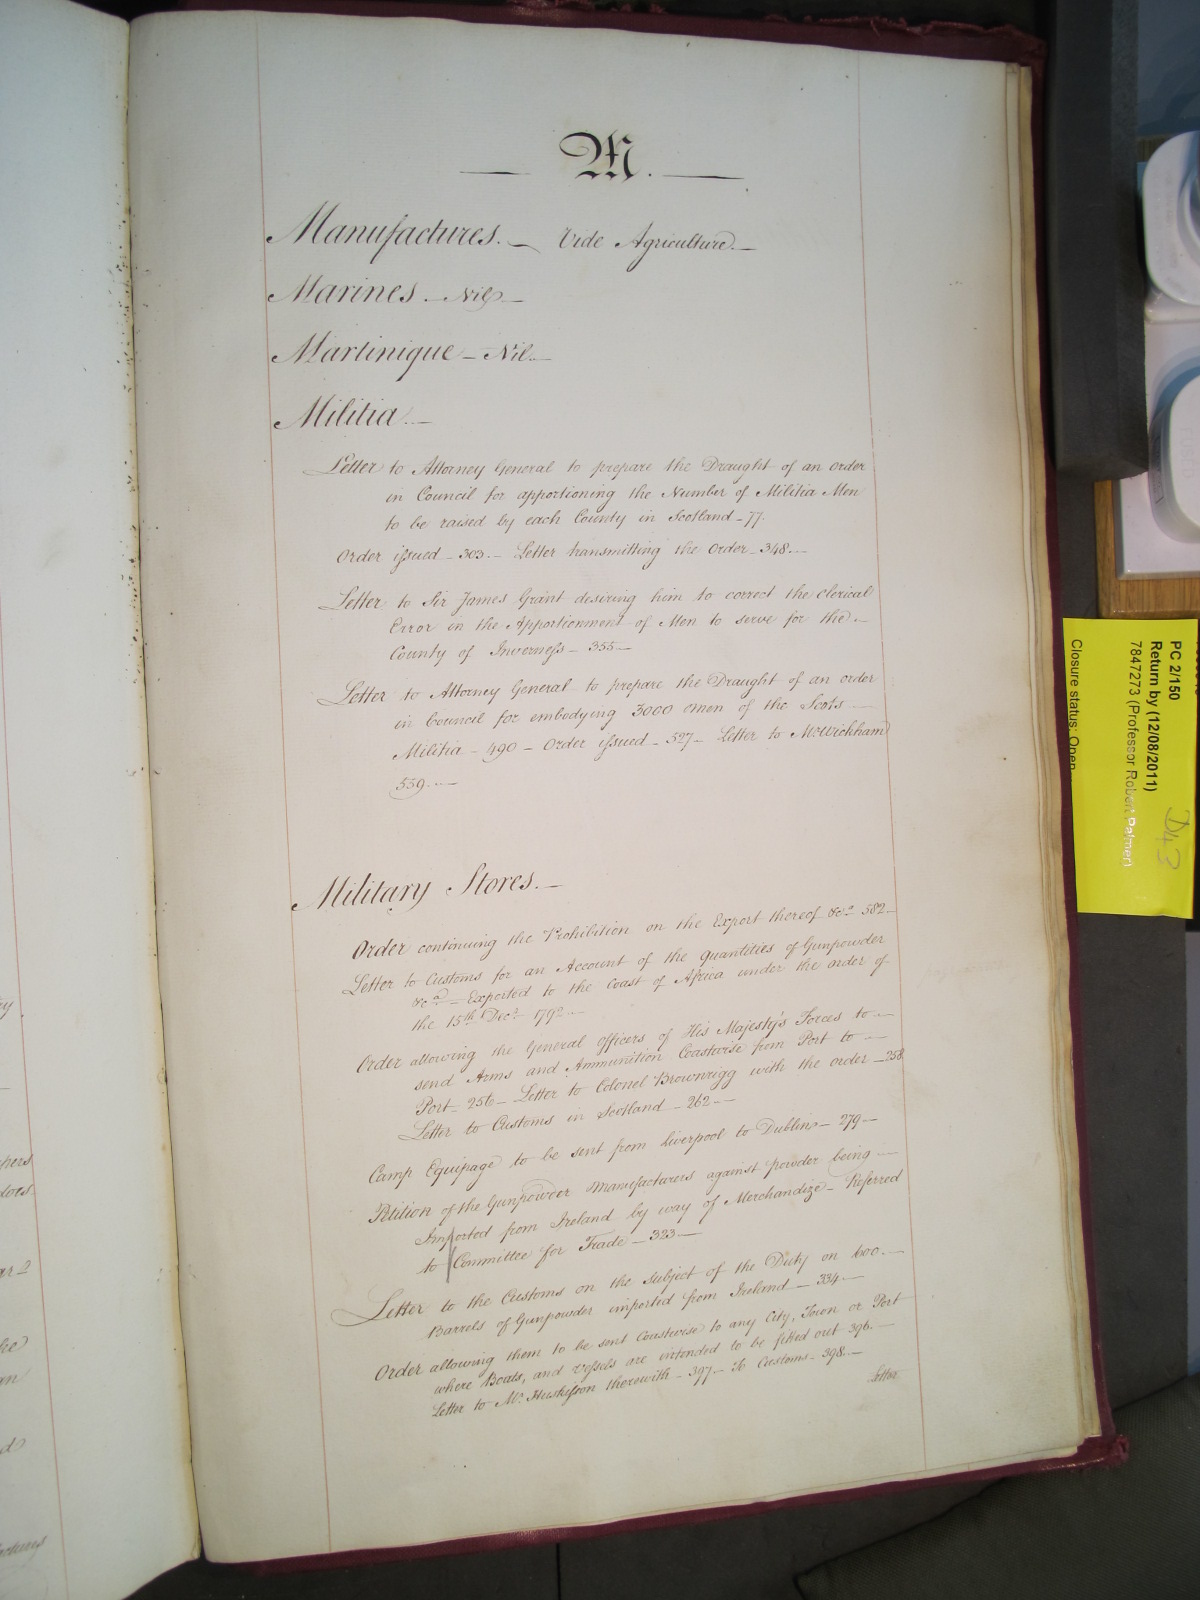 M.
Manufactures. — Vide Agriculture. —
Marines — Nil —
Martinique — Nil. —
Militia. —
Letter to Attorney General to prepare the Draught of an order
in Council for apportioning the Number of Militia Men
to be raised by each County in Scotland — 77.
Order issued — 303. — Letter transmitting the Order — 348. —
Letter to Sir James Grant desiring him to correct the Clerical
Error in the Apportionment of Men to serve for the —
County of Inverness — 355 —
Letter to Attorney General to prepare the Draught of an order
in Council for embodying 3000 Men of the Scots —
Militia — 490 — Order issued — 527 — Letter to Mr. Wickham
559. —
Military Stores. —
Order continuing the Prohibition on the Export thereof &ca. 582 —
Letter to Customs for an Account of the Quantities of Gunpowder
&ca. — Exported to the Coast of Africa under the order of
the 15th Decr. 1792 —
Order allowing the General Officers of His Majesty's Forces to —
send Arms and Ammunition Coastwise from Port to —
Port — 256 — Letter to Colonel Brownrigg with the order — 258
Letter to Customs in Scotland — 262 —
Camp Equipage to be sent from Liverpool to Dublin — 279 —
Petition of the Gunpowder Manufacturers against powder being —
Imported from Ireland by way of Merchandize — Referred
to Committee for Trade — 323 —
Letter to the Customs on the Subject of the Duty on 600. —
Barrels of Gunpowder imported from Ireland — 334. —
Order allowing them to be sent Coastwise to any City, Town or Port
where Boats, and Vessels are intended to be fitted out 396. —
Letter to Mr. Huskisson therewith — 397 — To Customs — 398. —
Letter
PC 2/150
Return by (12/08/2011)
7847273 (Professor Robert Palmer)
Closure status: Open
D43